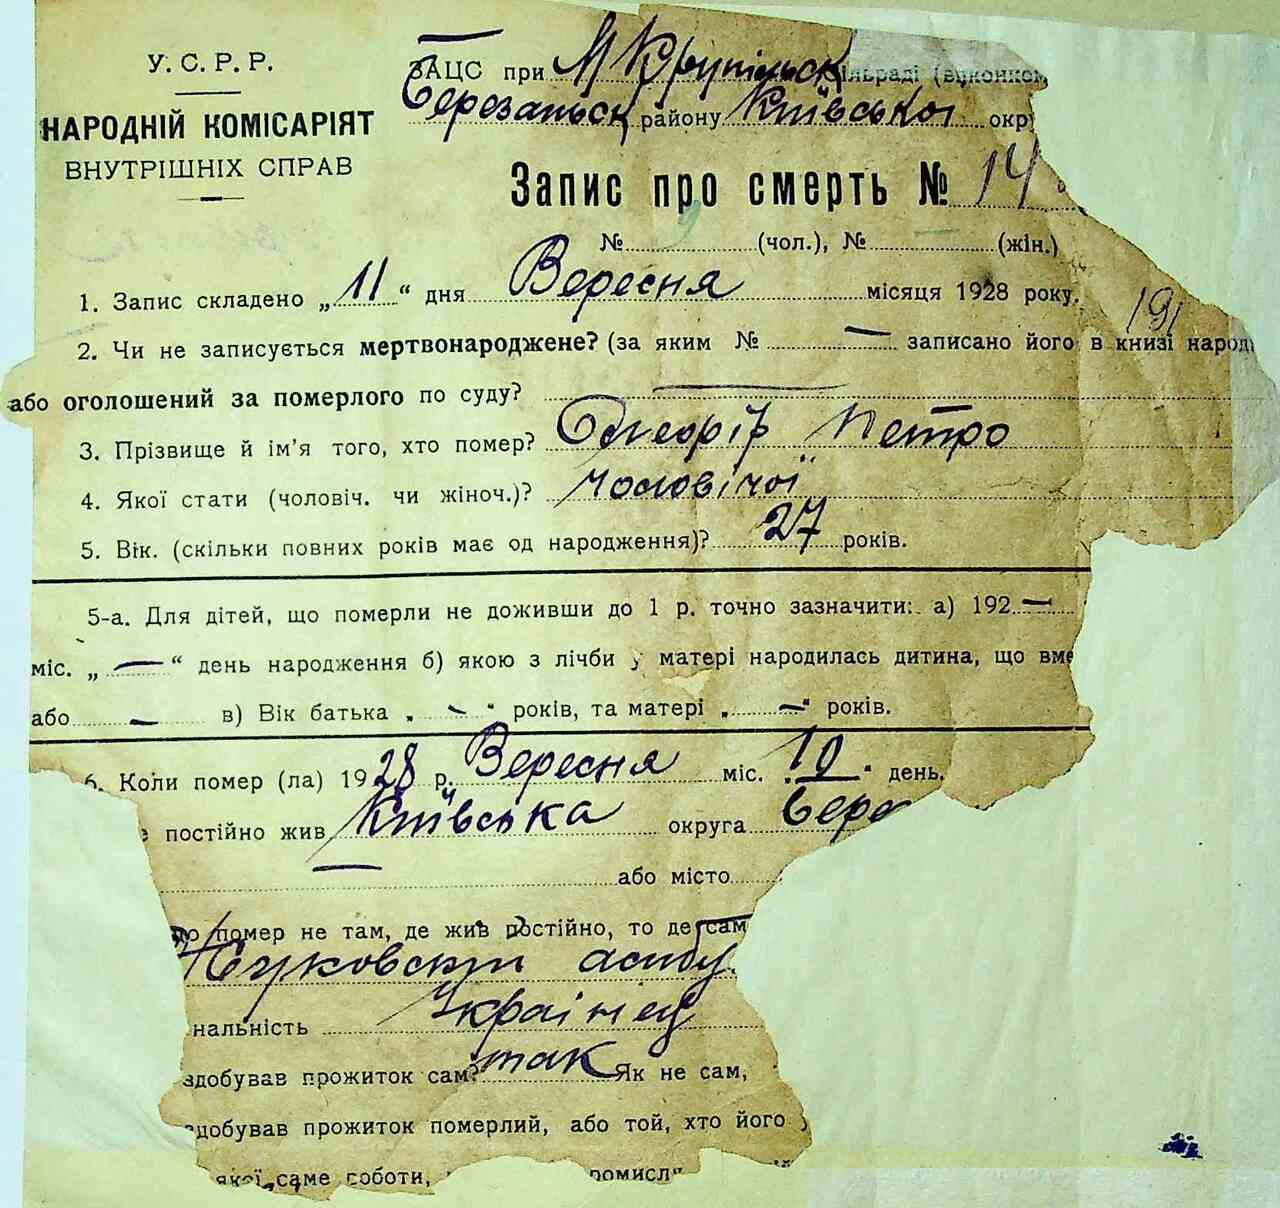 У. С. Р. Р.
НАРОДНІЙ КОМІСАРІЯТ
ВНУТРІШНІХ СПРАВ
ЗАЦС при М Крупільськ сільраді (виконком
Березанськ району Київської окр
Запис про смерть № 14
№ 9 (чол.), № — (жін.)
1. Запис складено „11“ дня Вересня місяця 1928 року.
191
2. Чи не записується мертвонароджене? (за яким № — записано його в книзі народ
або оголошений за померлого по суду? —
3. Прізвище й ім'я того, хто помер? Петро
4. Якої стати (чоловіч. чи жіноч.)? чоловічої
5. Вік. (скільки повних років має од народження)? 27 років.
5-а. Для дітей, що померли не доживши до 1 р. точно зазначити: а) 192 —
міс. „ — “ день народження б) якою з лічби у матері народилась дитина, що вме
або — в) Вік батька „ - “ років, та матері „ — “ років.
6. Коли помер (ла) 1928 р. Вересня міс. „10“ день.
е постійно жив Київська округа Бере
— або місто
що помер не там, де жив постійно, то де сам
нальність Українец
здобував прожиток сам? так Як не сам,
здобував прожиток померлий, або той, хто його у
якої саме роботи, промисл